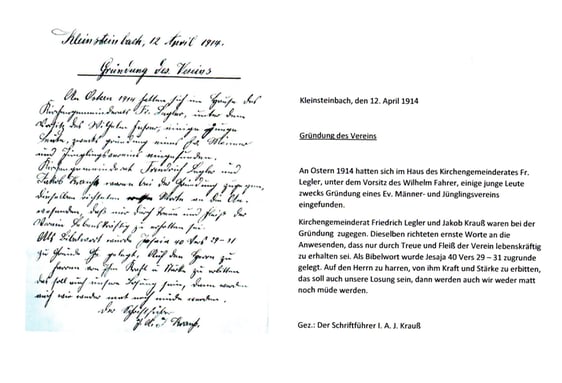 Kleinsteinbach, 12 April 1914.
Gründung des Vereins
An Ostern 1914 hatten sich im Hause des
Kirchengemeinderats Fr. Legler, unter dem
Vorsitz des Wilhelm Fahrer, einige junge
Leute, zwecks gründung eines Ev. Männer
und Jünglingsvereins eingefunden.
Kirchengemeinderat Friedrich Legler und
Jakob Krauß waren bei der Gründung zugegen,
dieselben richteten Worte an die An-
wesenden, daß nur durch treue und Fleiß der
Verein lebenskräftig zu erhalten sei.
Als Bibelwort wurde Jesaja 40 Vers 29-31
zu Grunde gelegt. Auf den Herrn zu
harren von ihm Kraft u Stärke zu erbitten
das soll auch unsere Losung sein, dann werden
auch wir weder matt noch müde werden.
Der Schriftführer
J. A. J. Krauß.
Kleinsteinbach, den 12. April 1914
Gründung des Vereins
An Ostern 1914 hatten sich im Haus des Kirchengemeinderates Fr.
Legler, unter dem Vorsitz des Wilhelm Fahrer, einige junge Leute
zwecks Gründung eines Ev. Männer- und Jünglingsvereins
eingefunden.
Kirchengemeinderat Friedrich Legler und Jakob Krauß waren bei der
Gründung zugegen. Dieselben richteten ernste Worte an die
Anwesenden, dass nur durch Treue und Fleiß der Verein lebenskräftig
zu erhalten sei. Als Bibelwort wurde Jesaja 40 Vers 29 – 31 zugrunde
gelegt. Auf den Herrn zu harren, von ihm Kraft und Stärke zu erbitten,
das soll auch unsere Losung sein, dann werden auch wir weder matt
noch müde werden.
Gez.: Der Schriftführer I. A. J. Krauß